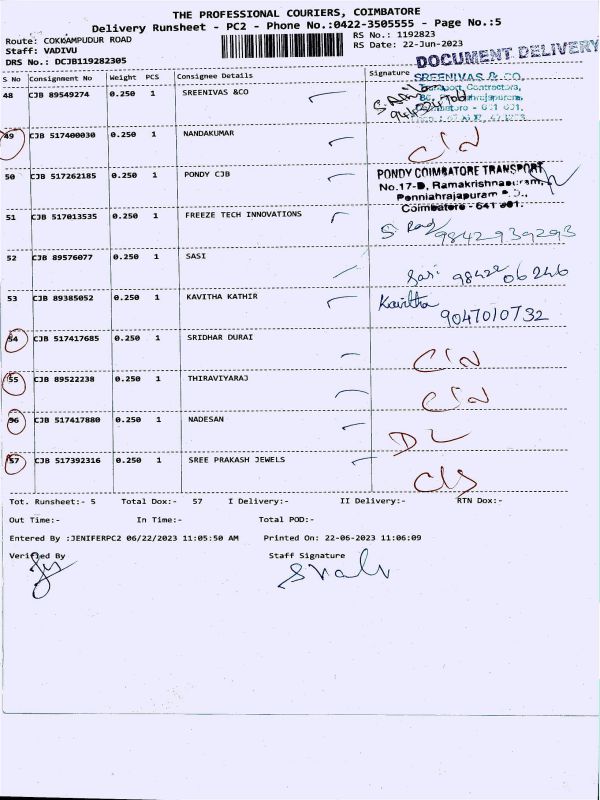 THE PROFESSIONAL COURIERS, COIMBATORE
Delivery Runsheet - PC2 - Phone No.:0422-3505555 - Page No.:5
Route: COKKAMPUDUR ROAD
Staff: VADIVU
DRS No.: DCJB119282305
RS No.: 1192823
RS Date: 22-Jun-2023
DOCUMENT DELIVERY
S No Consignment No Weight PCS Consignee Details Signature
48 CJB 89549274 0.250 1 SREENIVAS &CO
SREENIVAS & CO.
Contractors,
49 CJB 517400030 0.250 1 NANDAKUMAR
50 CJB 517262185 0.250 1 PONDY CJB
PONDY COIMBATORE TRANSPORT
No.17-D, Ramakrishnapuram,
Ponniahrajapuram P.O.,
Coimbatore - 641 001.
51 CJB 517013535 0.250 1 FREEZE TECH INNOVATIONS
9842939293
52 CJB 89576077 0.250 1 SASI
Sasi 98422 06246
53 CJB 89385052 0.250 1 KAVITHA KATHIR
Kavitha
9047010732
54 CJB 517417685 0.250 1 SRIDHAR DURAI
55 CJB 89522238 0.250 1 THIRAVIYARAJ
56 CJB 517417880 0.250 1 NADESAN
DL
57 CJB 517392316 0.250 1 SREE PRAKASH JEWELS
Tot. Runsheet:- 5 Total Dox:- 57 I Delivery:- II Delivery:- RTN Dox:-
Out Time:- In Time:- Total POD:-
Entered By :JENIFERPC2 06/22/2023 11:05:50 AM Printed On: 22-06-2023 11:06:09
Verified By Staff Signature